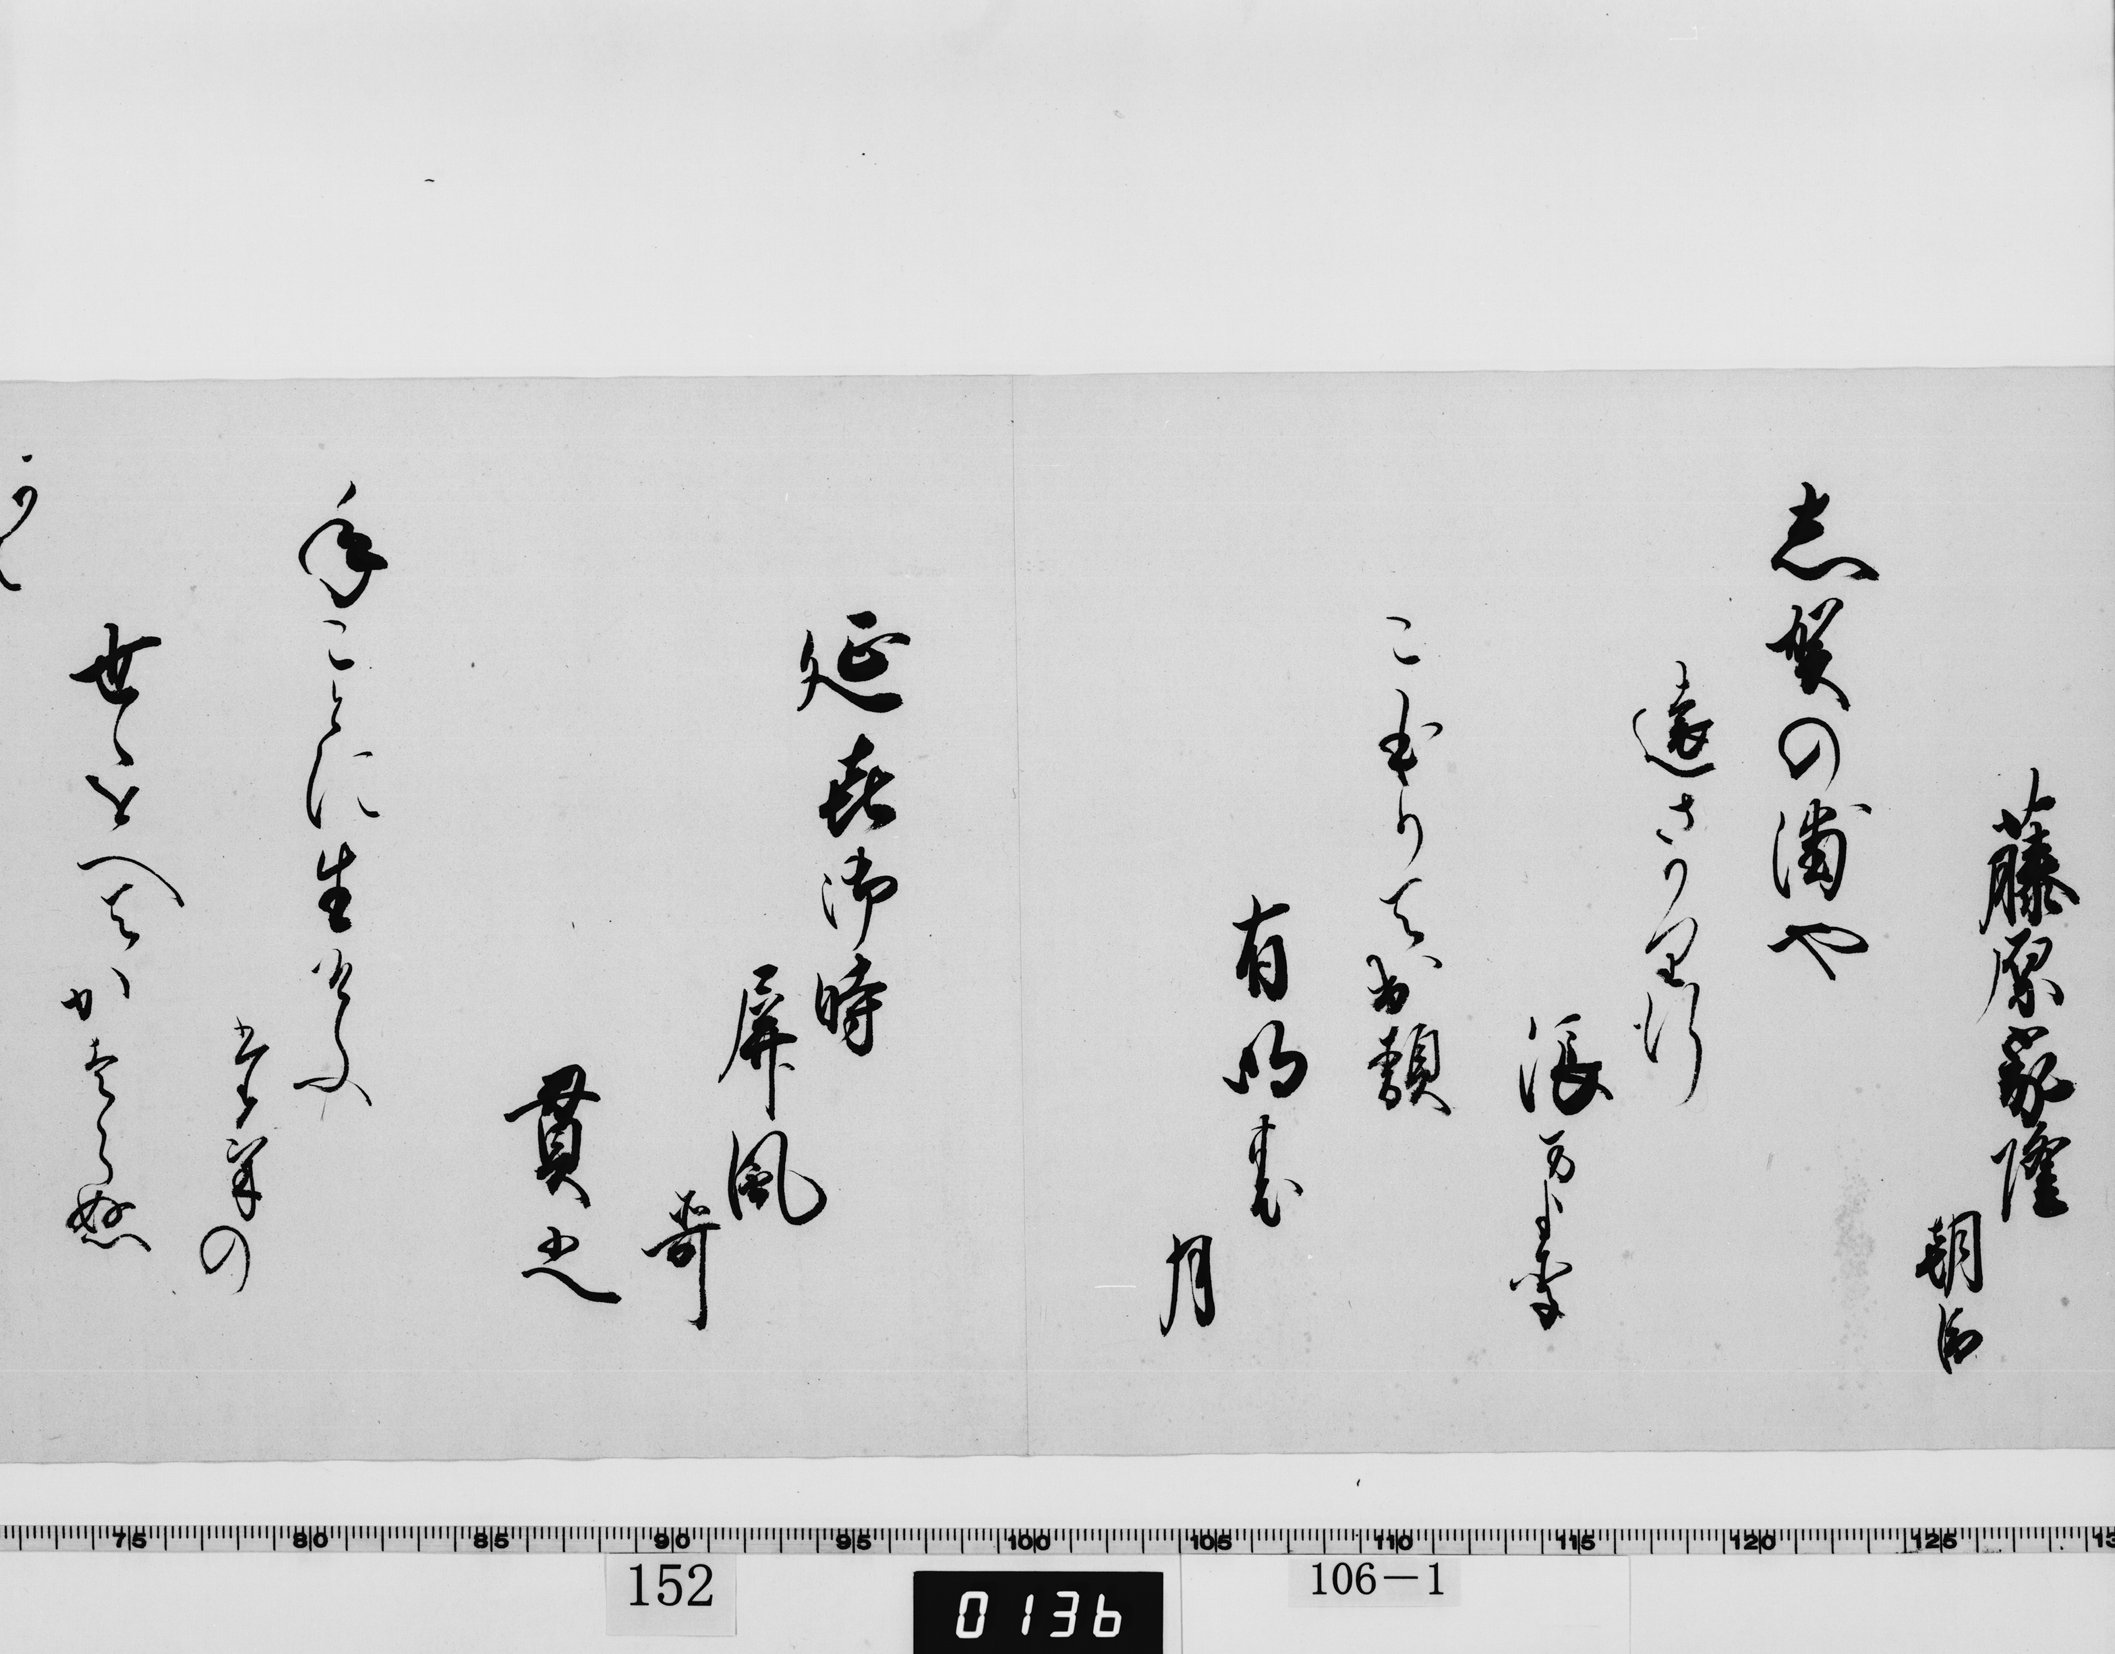 藤原家隆
朝臣
志賀の浦や
遠さかり行
浪まより
こほりて出る
有明の
月
延喜御時
屏風
哥
貫之
年ことに生そふ
たけの
世ゝをへてかはらぬ